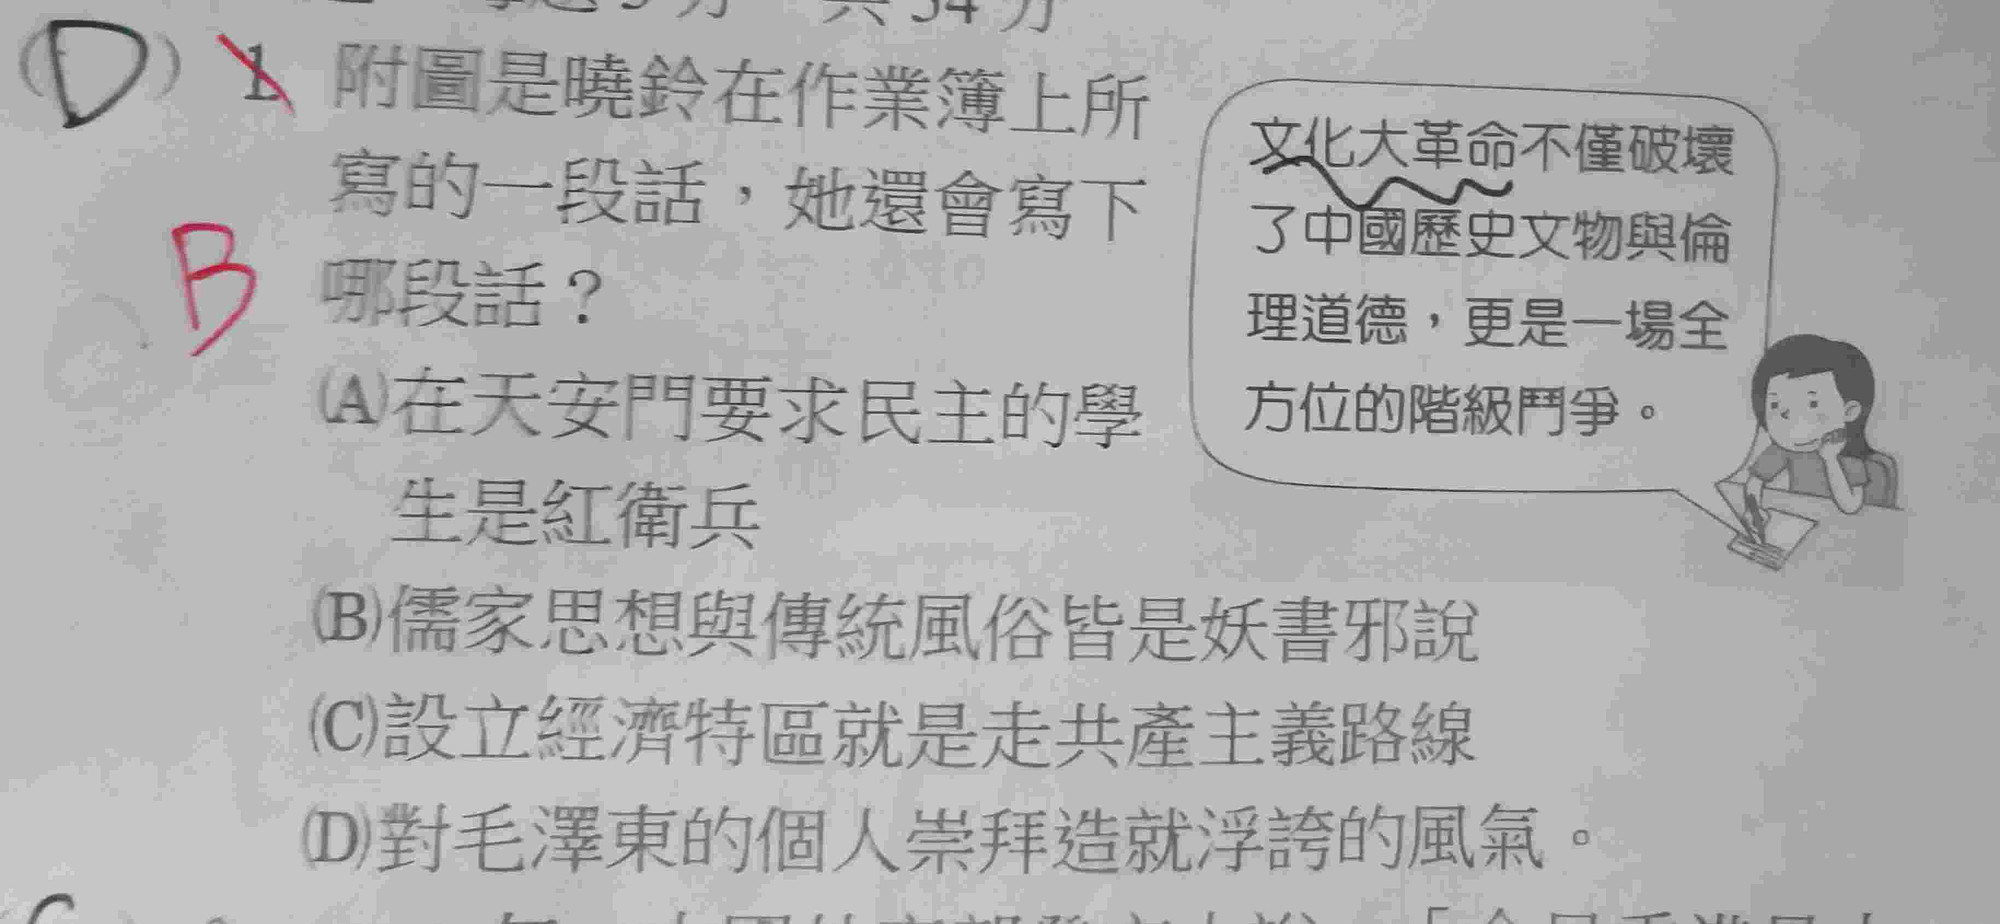 共34分
(D) 1 附圖是曉鈴在作業簿上所
寫的一段話，她還會寫下
哪段話？
B
(A)在天安門要求民主的學
生是紅衛兵
(B)儒家思想與傳統風俗皆是妖書邪說
(C)設立經濟特區就是走共產主義路線
(D)對毛澤東的個人崇拜造就浮誇的風氣。
文化大革命不僅破壞
了中國歷史文物與倫
理道德，更是一場全
方位的階級鬥爭。